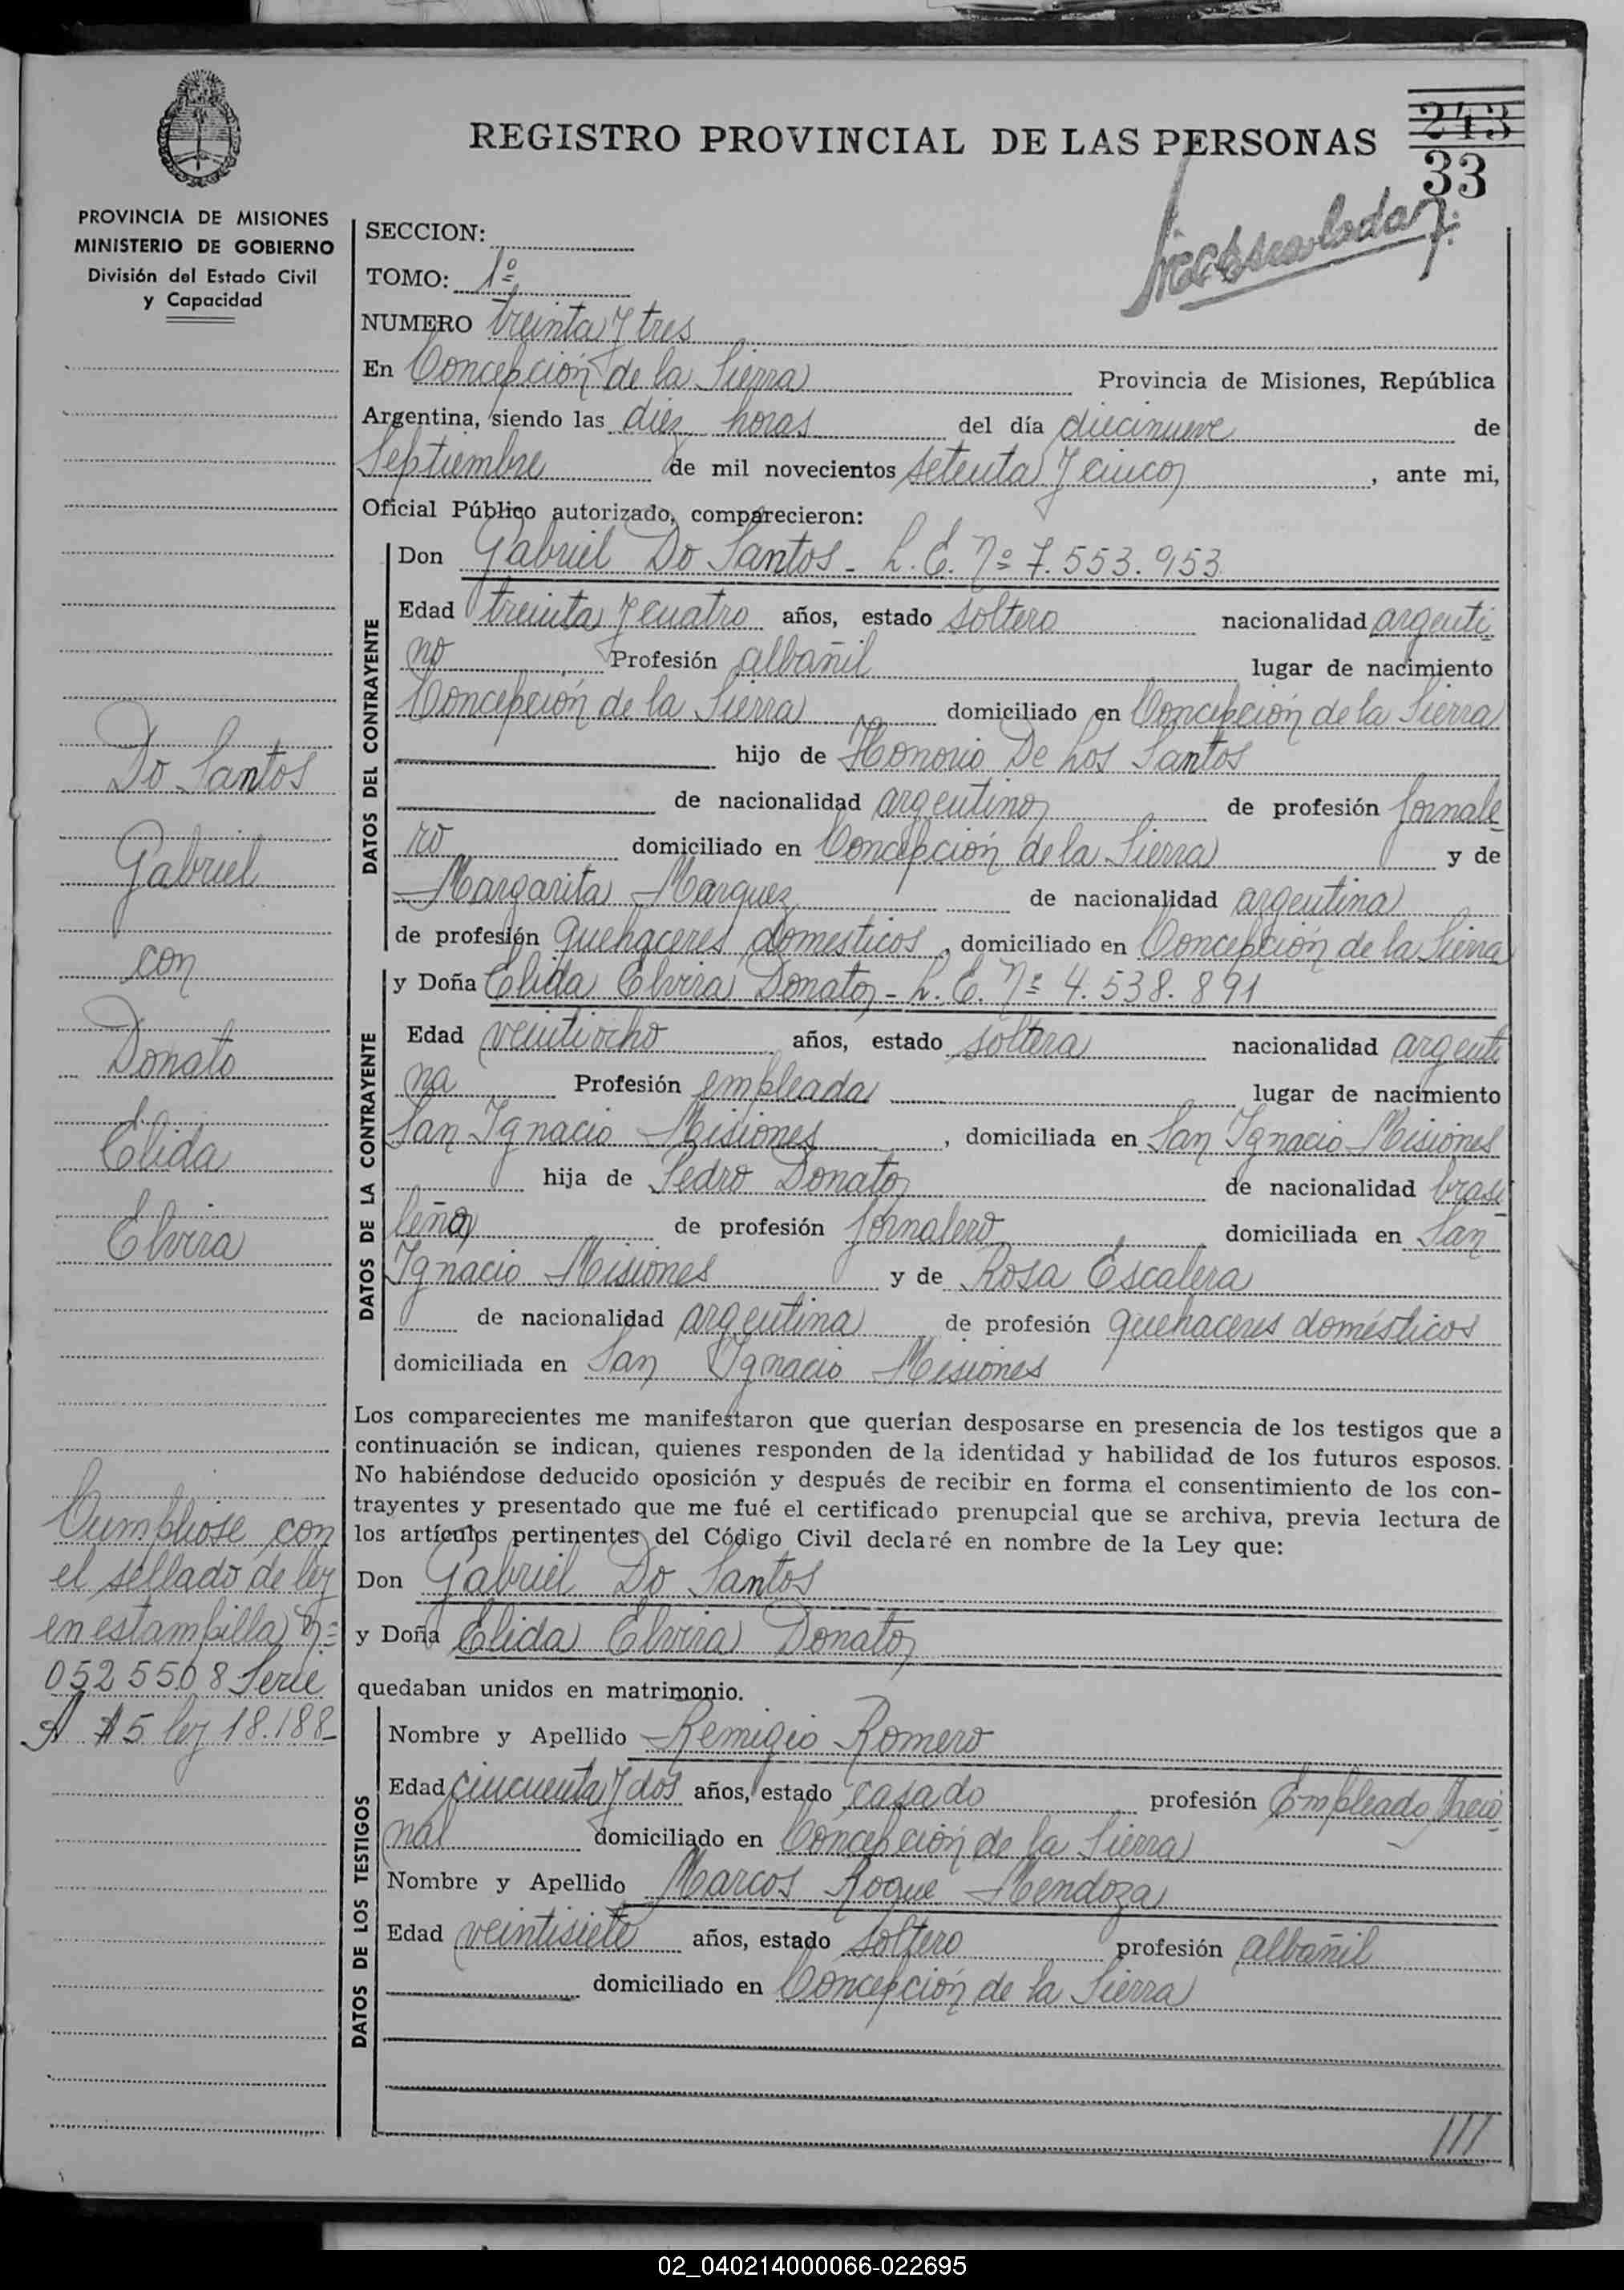 REGISTRO PROVINCIAL DE LAS PERSONAS
243
33
PROVINCIA DE MISIONES
MINISTERIO DE GOBIERNO
División del Estado Civil
y Capacidad
SECCION:
TOMO: 1º
NUMERO treinta y tres
En Concepción de la Sierra Provincia de Misiones, República
Argentina, siendo las diez horas del día diecinueve de
Septiembre de mil novecientos setenta y cinco, ante mi,
Oficial Público autorizado, comparecieron:
DATOS DEL CONTRAYENTE
Don Gabriel Do Santos - L. E. Nº 7.553.953
Edad treinta y cuatro años, estado soltero nacionalidad argenti
no Profesión albañil lugar de nacimiento
Concepción de la Sierra domiciliado en Concepción de la Sierra
hijo de Honorio De Los Santos
de nacionalidad argentino de profesión Jornale
ro domiciliado en Concepción de la Sierra y de
Margarita Marquez de nacionalidad argentina
de profesión quehaceres domesticos, domiciliado en Concepción de la Sierra
DATOS DE LA CONTRAYENTE
y Doña Elida Elvira Donato - L. E. Nº 4.538.891
Edad veintiocho años, estado soltera nacionalidad argenti
na Profesión empleada lugar de nacimiento
San Ignacio Misiones, domiciliada en San Ignacio Misiones
hija de Pedro Donato de nacionalidad brasi
leña de profesión Jornalero domiciliada en San
Ignacio Misiones y de Rosa Escalera
de nacionalidad argentina de profesión quehaceres domésticos
domiciliada en San Ignacio Misiones
Los comparecientes me manifestaron que querían desposarse en presencia de los testigos que a
continuación se indican, quienes responden de la identidad y habilidad de los futuros esposos.
No habiéndose deducido oposición y después de recibir en forma el consentimiento de los con-
trayentes y presentado que me fué el certificado prenupcial que se archiva, previa lectura de
los artículos pertinentes del Código Civil declaré en nombre de la Ley que:
Don Gabriel Do Santos
y Doña Elida Elvira Donato
quedaban unidos en matrimonio.
DATOS DE LOS TESTIGOS
Nombre y Apellido Remigio Romero
Edad cincuenta y dos años, estado casado profesión Empleado Nacio
nal domiciliado en Concepción de la Sierra
Nombre y Apellido Marcos Roque Mendoza
Edad veintisiete años, estado soltero profesión albañil
domiciliado en Concepción de la Sierra
///
Do Santos
Gabriel
con
Donato
Elida
Elvira
Cumpliose con
el sellado de ley
en estampilla Nº
0525508 Serie
A $5 ley 18.188-
02_040214000066-022695